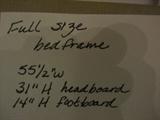 Full size
bedframe
55 1/2" W
31" H headboard
14" H footboard